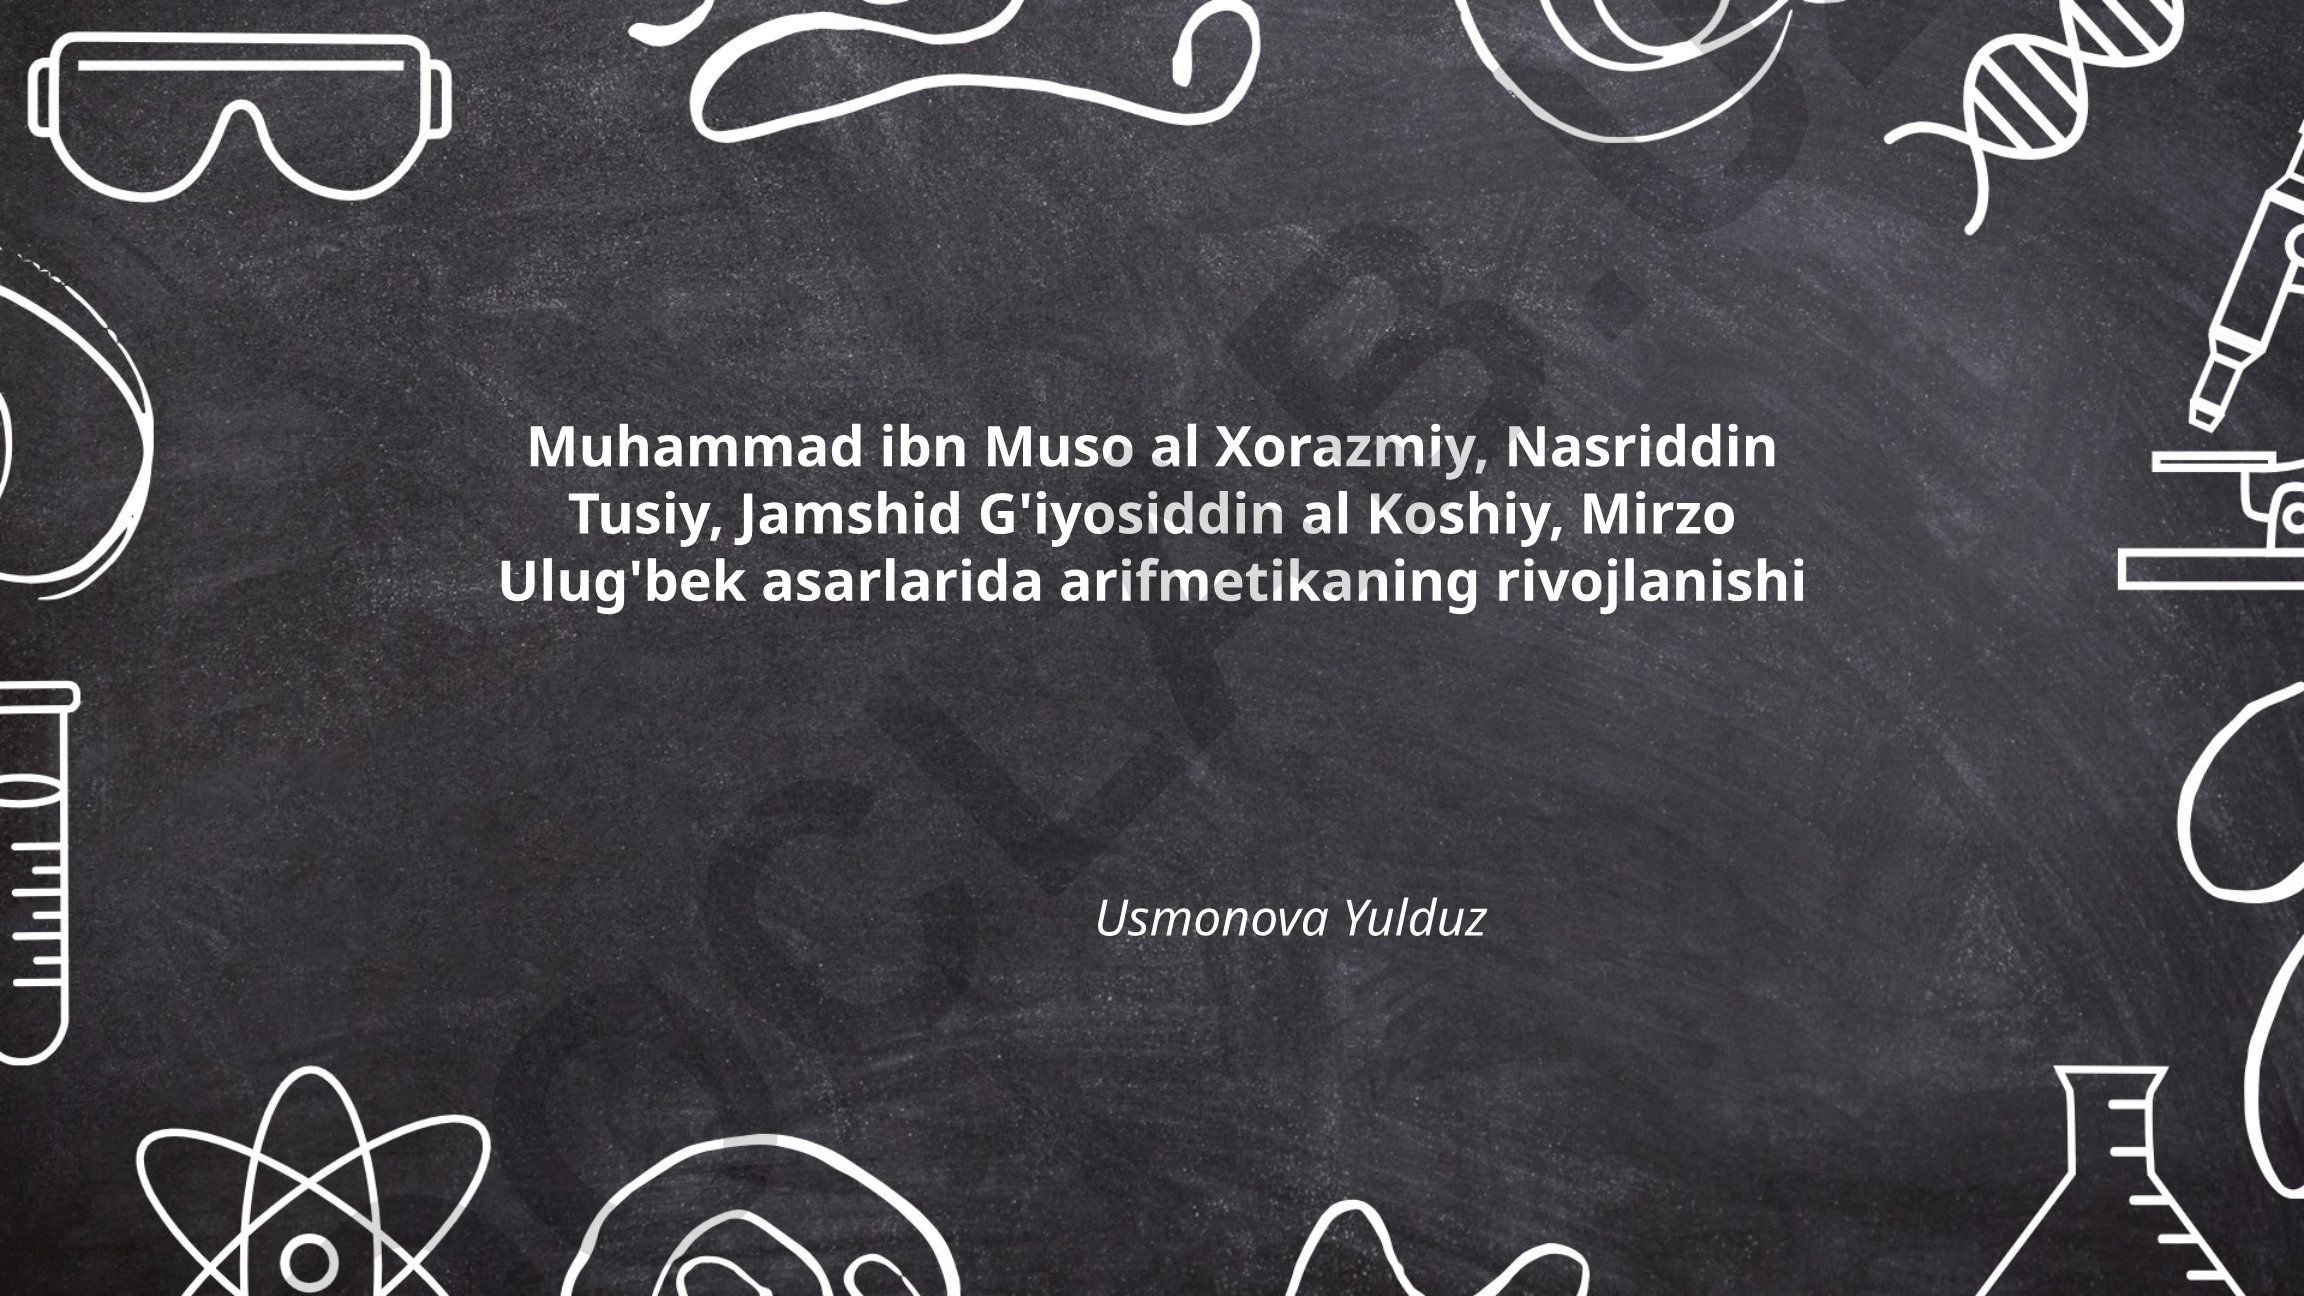 Muhammad ibn Muso al Xorazmiy, Nasriddin
Tusiy, Jamshid G'iyosiddin al Koshiy, Mirzo
Ulug'bek asarlarida arifmetikaning rivojlanishi
Usmonova Yulduz